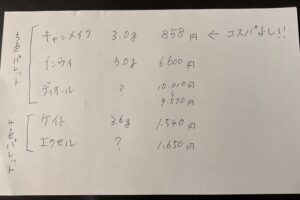 5色パレット
キャンメイク 3.0g 858円 ← コスパよし!!
インウイ 5.0g 6600円
ディオール ? 10,010円
〜
9,570円
4色パレット
ケイト 3.6g 1,540円
エクセル ? 1,650円